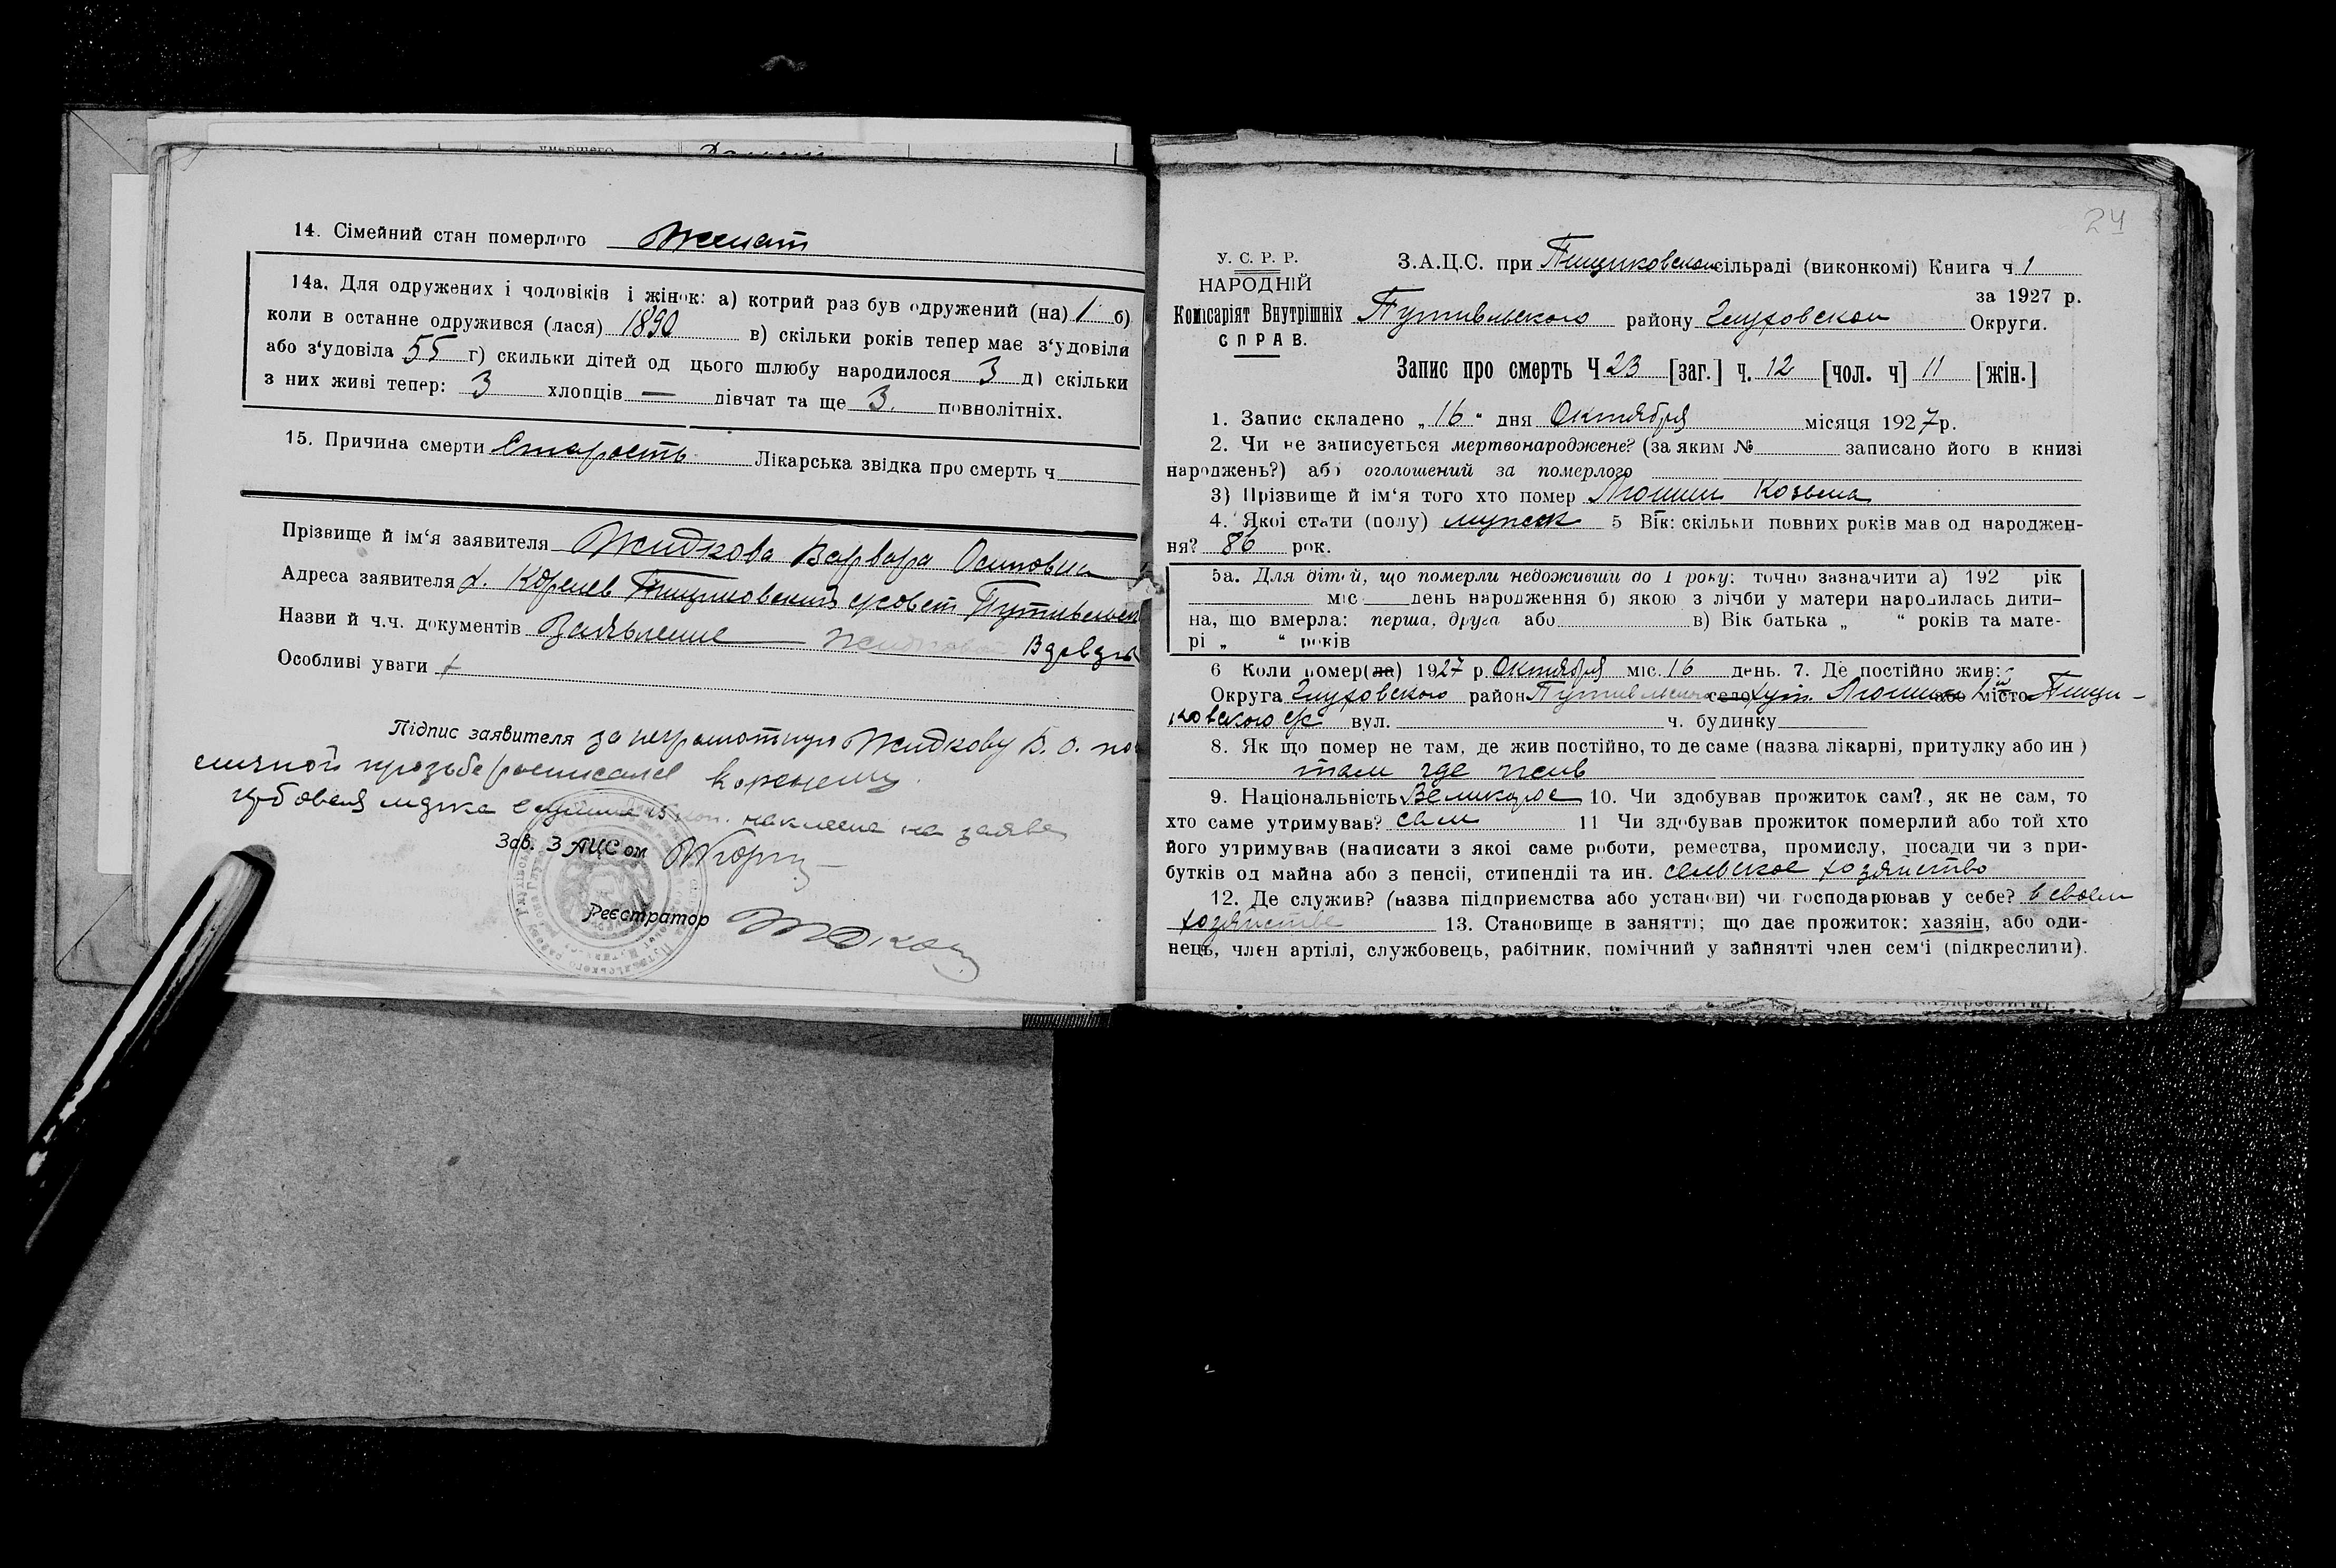 14. Сімейний стан померлого Женат
14а. Для одружених і чоловіків і жінок: а) котрий раз був одружений (на) 1 б)
коли в останне одружився (лася) 1890 в) скільки років тепер має з'удовіли
або з'удовіла 55 г) скильки дітей од цього шлюбу народилося 3 д) скільки
з них живі тепер: 3 хлопців — дівчат та ще 3. повнолітніх.
15. Причина смерти Старость Лікарська звідка про смерть ч
Прізвище й ім'я заявителя Жидкова Варвара Осиповна
Адреса заявителя х. Коренев Пищиковский с/совет Путивльск
Назви й ч.ч. документів Заявление — Жидковой
Особливі уваги
Підпис заявителя за неграмотную Жидкову В. О. по
личной прозьбе росписался
марка наклеена на заяве
Зав. ЗАЦСом
Реєстратор
24
У. С. Р. Р.
НАРОДНІЙ
Комісаріят Внутрішніх
СПРАВ.
З.А.Ц.С. при Пищиковском сільраді (виконкомі) Книга ч 1
за 1927 р.
Путивльского району Глуховской Округи.
Запис про смерть Ч 23 [заг.] ч. 12 [чол. ч] 11 [жін.]
1. Запис складено „16" дня Октября місяця 1927р.
2. Чи не записується мертвонароджене? (за яким № записано його в книзі
народжень?) або оголошений за померлого
3) Прізвище й ім'я того хто помер Люшин Козьма
4. Якоі стати (полу) мужск 5 Вік: скільки повних років мав од народжен-
ня? 86 рок.
5а. Для дітей, що померли недоживши до 1 року: точно зазначити а) 192 рік
міс день народження б) якою з лічби у матери народилась дити-
на, що вмерла: перша, друга або в) Вік батька „ " років та мате-
рі „ " років
6 Коли помер(ла) 1927 р. Октября міс. 16 день. 7. Де постійно жив:
Округа Глуховского район Путивльского село хут. Люшин або місто Пищи-
ковского с/с вул. ч. будинку
8. Як що помер не там, де жив постійно, то де саме (назва лікарні, притулку або ин )
там где жив
9. Національність Великорос 10. Чи здобував прожиток сам?, як не сам, то
хто саме утримував? сам 11 Чи здобував прожиток померлий або той хто
його утримував (написати з якоі саме роботи, ремества, промислу, посади чи з при-
бутків од майна або з пенсіі, стипендіі та ин. сельское хозяйство
12. Де служив? (назва підприємства або установи) чи господарював у себе? в своем
хозяйстве 13. Становище в занятті; що дає прожиток: хазяін, або оди-
нець, член артілі, службовець, рабітник, помічний у зайнятті член сем'і (підкреслити).